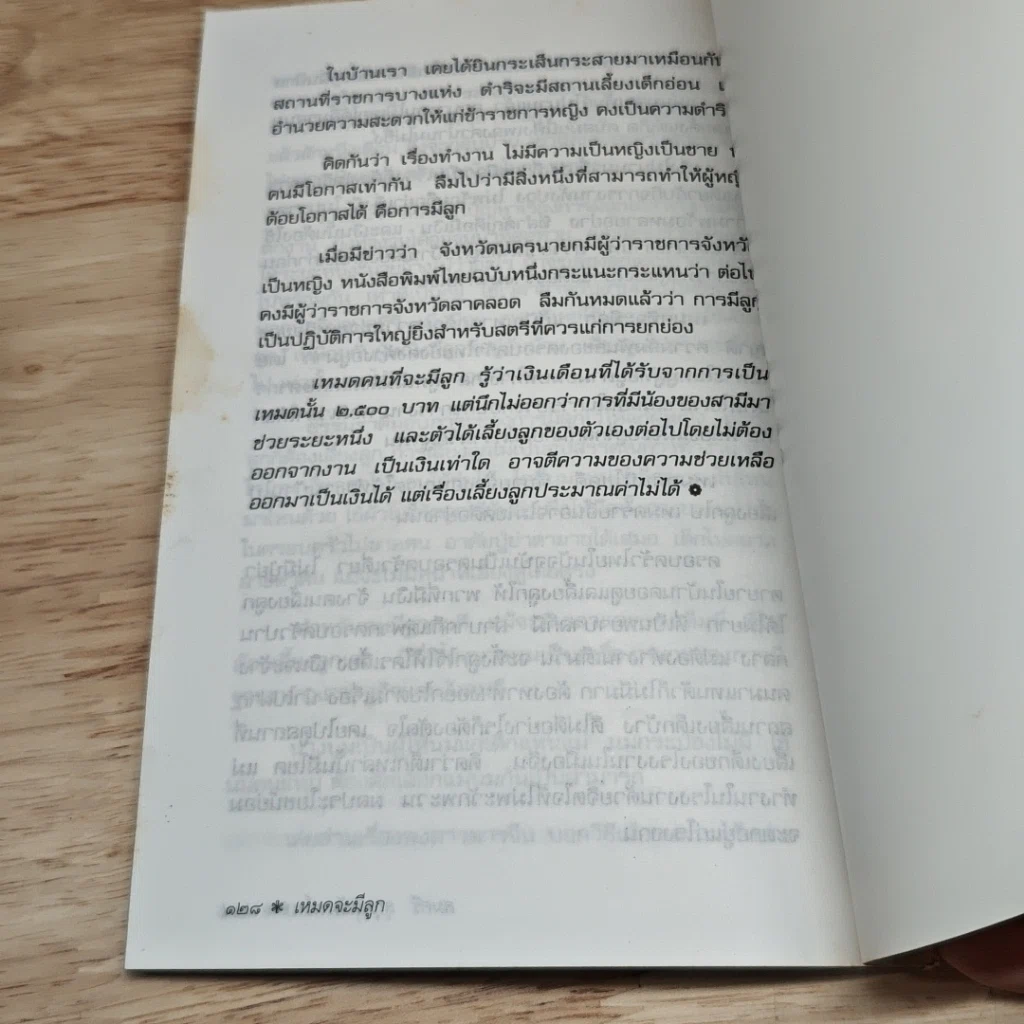 ในบ้านเรา เคยได้ยินกระเส็นกระสายมาเหมือนกัน
สถานที่ราชการบางแห่ง ดำริจะมีสถานเลี้ยงเด็กอ่อน
อำนวยความสะดวกให้แก่ข้าราชการหญิง คงเป็นความดำริ
คิดกันว่า เรื่องทำงาน ไม่มีความเป็นหญิงเป็นชาย
คนมีโอกาสเท่ากัน ลืมไปว่ามีสิ่งหนึ่งที่สามารถทำให้
ด้อยโอกาสได้ คือการมีลูก
เมื่อมีข่าวว่า จังหวัดนครนายกมีผู้ว่าราชการจังหวัด
เป็นหญิง หนังสือพิมพ์ไทยฉบับหนึ่งกระแนะกระแหนว่า ต่อไป
คงมีผู้ว่าราชการจังหวัดลาคลอด ลืมกันหมดแล้วว่า การมีลูก
เป็นปฏิบัติการใหญ่ยิ่งสำหรับสตรีที่ควรแก่การยกย่อง
เหมดคนที่จะมีลูก รู้ว่าเงินเดือนที่ได้รับจากการเป็น
เหมดนั้น ๒,๕๐๐ บาท แต่นึกไม่ออกว่าการที่มีน้องของสามีมา
ช่วยระยะหนึ่ง และตัวได้เลี้ยงลูกของตัวเองต่อไปโดยไม่ต้อง
ออกจากงาน เป็นเงินเท่าใด อาจตีความของความช่วยเหลือ
ออกมาเป็นเงินได้ แต่เรื่องเลี้ยงลูกประมาณค่าไม่ได้
๑๒๘ * เหมดจะมีลูก